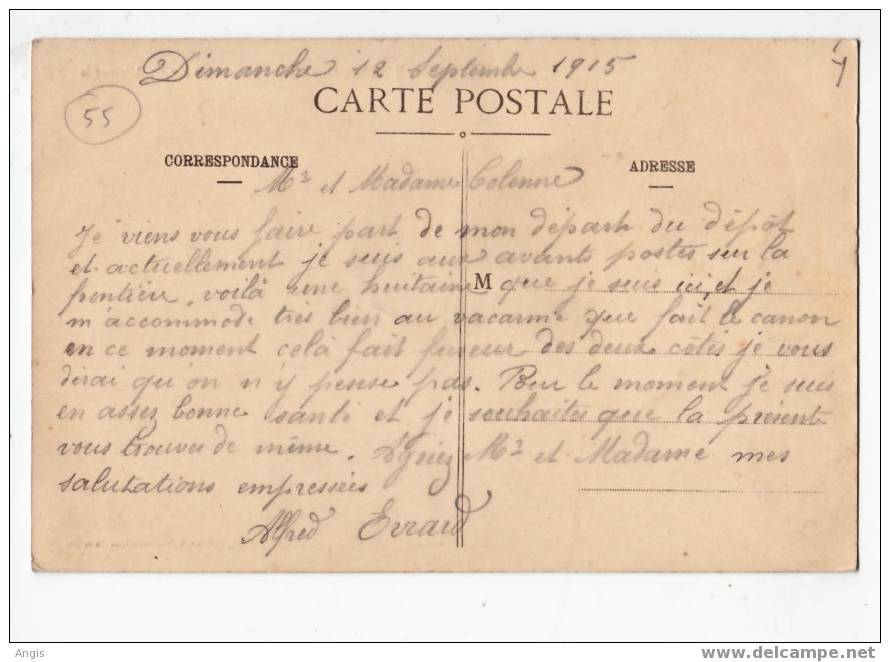 Dimanche 12 Septembre 1915
55
CARTE POSTALE
CORRESPONDANCE
ADRESSE
Mr et Madame Colenne
Je viens vous faire part de mon départ du dépôt
et actuellement je suis aux avants postes sur la
frontière, voilà une huitaine M que je suis ici, et je
m'accommode très bien au vacarme que fait le canon
en ce moment celà fait fureur des deux côtés je vous
dirai qu'on n'y pense pas. Pour le moment je suis
en assez bonne santé et je souhaites que la présente
vous trouves de même. Agréez Mr et Madame mes
salutations empressées
Alfred Evrard
Angis
www.delcampe.net